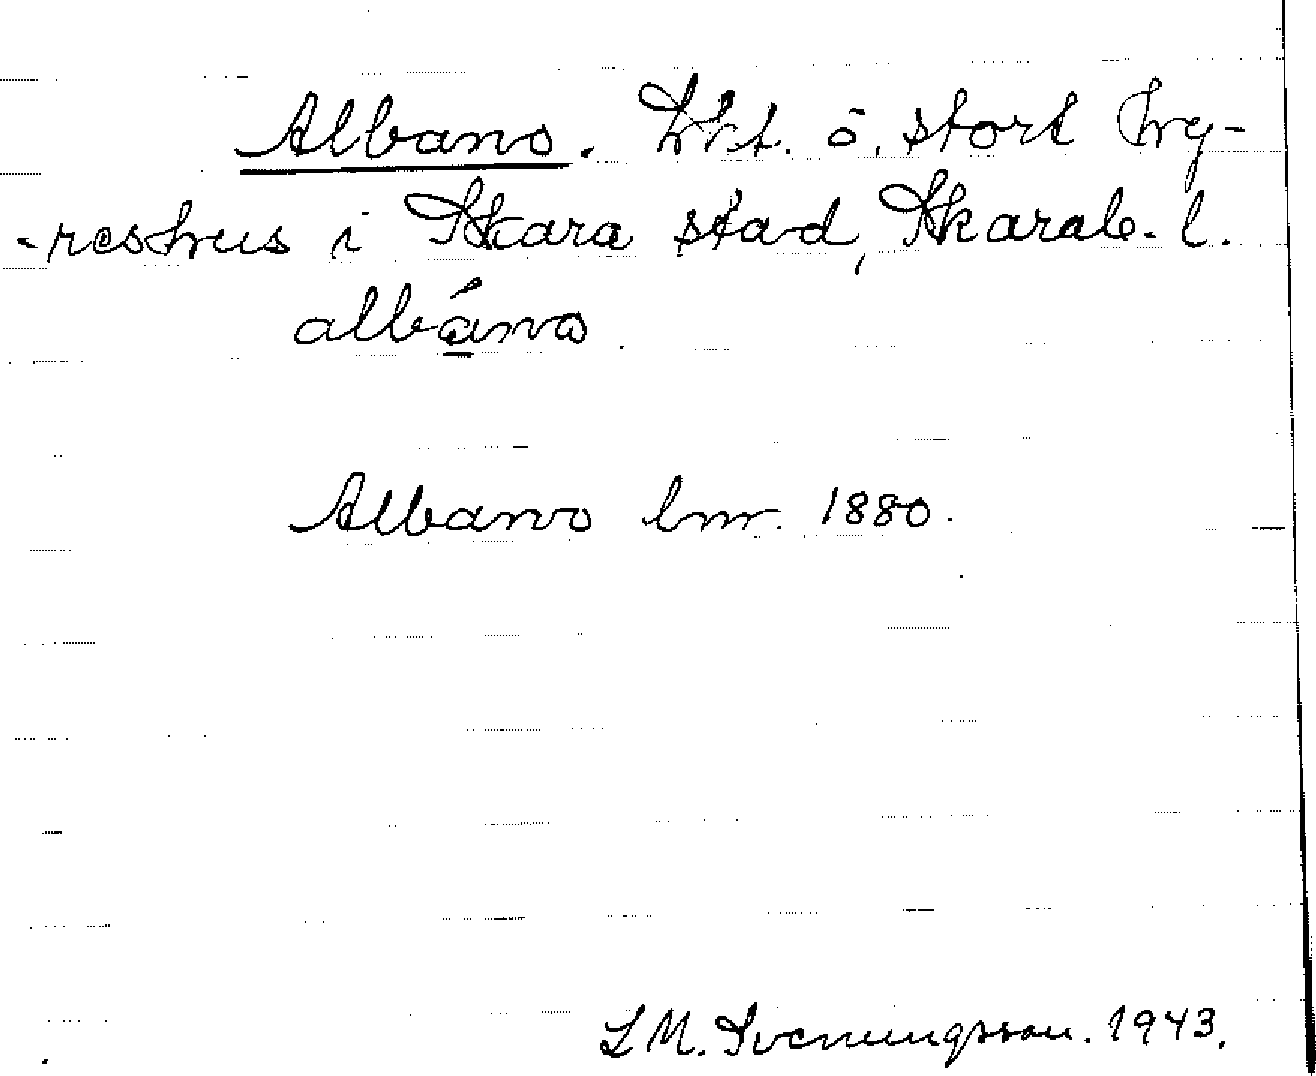 Albano. Kvt. o. stort hy-
-reshus i Skara stad, Skarab. l.
albáno
Albano bnr. 1880.
L M. Svenungsson. 1943.